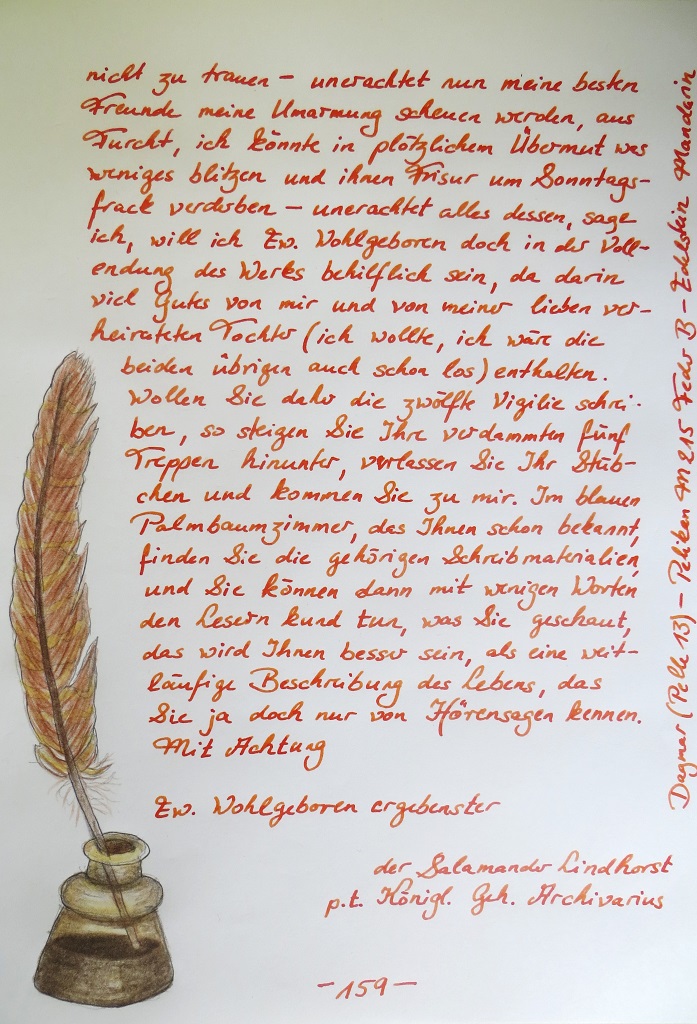 nicht zu trauen – unerachtet nun meine besten
Freunde meine Umarmung scheuen werden, aus
Furcht, ich könnte in plötzlichem Übermut was
weniges blitzen und ihnen Frisur um Sonntags-
frack verderben – unerachtet alles dessen, sage
ich, will ich Ew. Wohlgeboren doch in der Voll-
endung des Werks behilflich sein, da darin
viel Gutes von mir und von meiner lieben ver-
heirateten Tochter (ich wollte, ich wäre die
beiden übrigen auch schon los) enthalten.
Wollen Sie daher die zwölfte Vigilie schrei-
ben, so steigen Sie Ihre verdammten fünf
Treppen hinunter, verlassen Sie Ihr Stüb-
chen und kommen Sie zu mir. Im blauen
Palmbaumzimmer, das Ihnen schon bekannt,
finden Sie die gehörigen Schreibmaterialien,
und Sie können dann mit wenigen Worten
den Lesern kund tun, was Sie geschaut,
das wird Ihnen besser sein, als eine weit-
läufige Beschreibung des Lebens, das
Sie ja doch nur von Hörensagen kennen.
Mit Achtung
Ew. Wohlgeboren ergebenster
der Salamander Lindhorst
p.t. Königl. Geh. Archivarius
– 159 –
Dagmar (Pelle 13) – Pelikan M 215 Feder B – Edelstein Mandarin